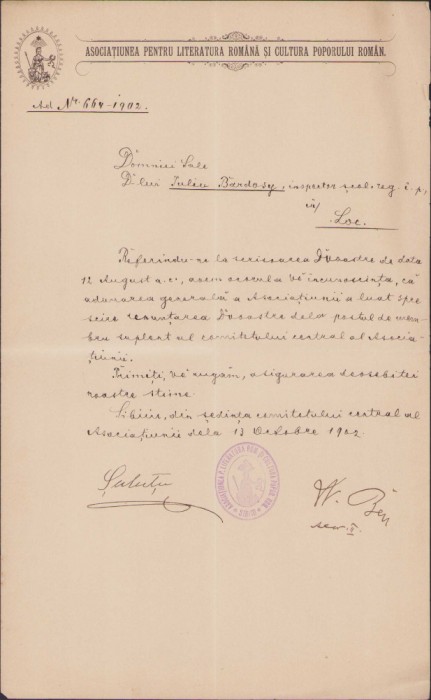 ASOCIAȚIUNEA PENTRU LITERATURA ROMÂNĂ ȘI CULTURA POPORULUI ROMÂN.
Ad Nr. 664-1902.
Domniei Sale
D-lui Iuliu Bardosy, inspector școl. reg. i. p.,
în
Loc.
Referindu-ne la scrisoarea Dvoastre de data
12 August a.c., avem onoare Vĕ încunosciința, că
adunarea generală a Asociațiunii a luat spre
sciire renunțarea Dvoastre dela postul de mem-
bru suplent al comitetului central al Asocia-
țiunii.
Primiți, Vĕ rugăm, asigurarea deosebitei
noastre stime.
Sibiiu, din ședința comitetului central al
Asociațiunii dela 13 Octobre 1902.
Șuluțu
secr. II.